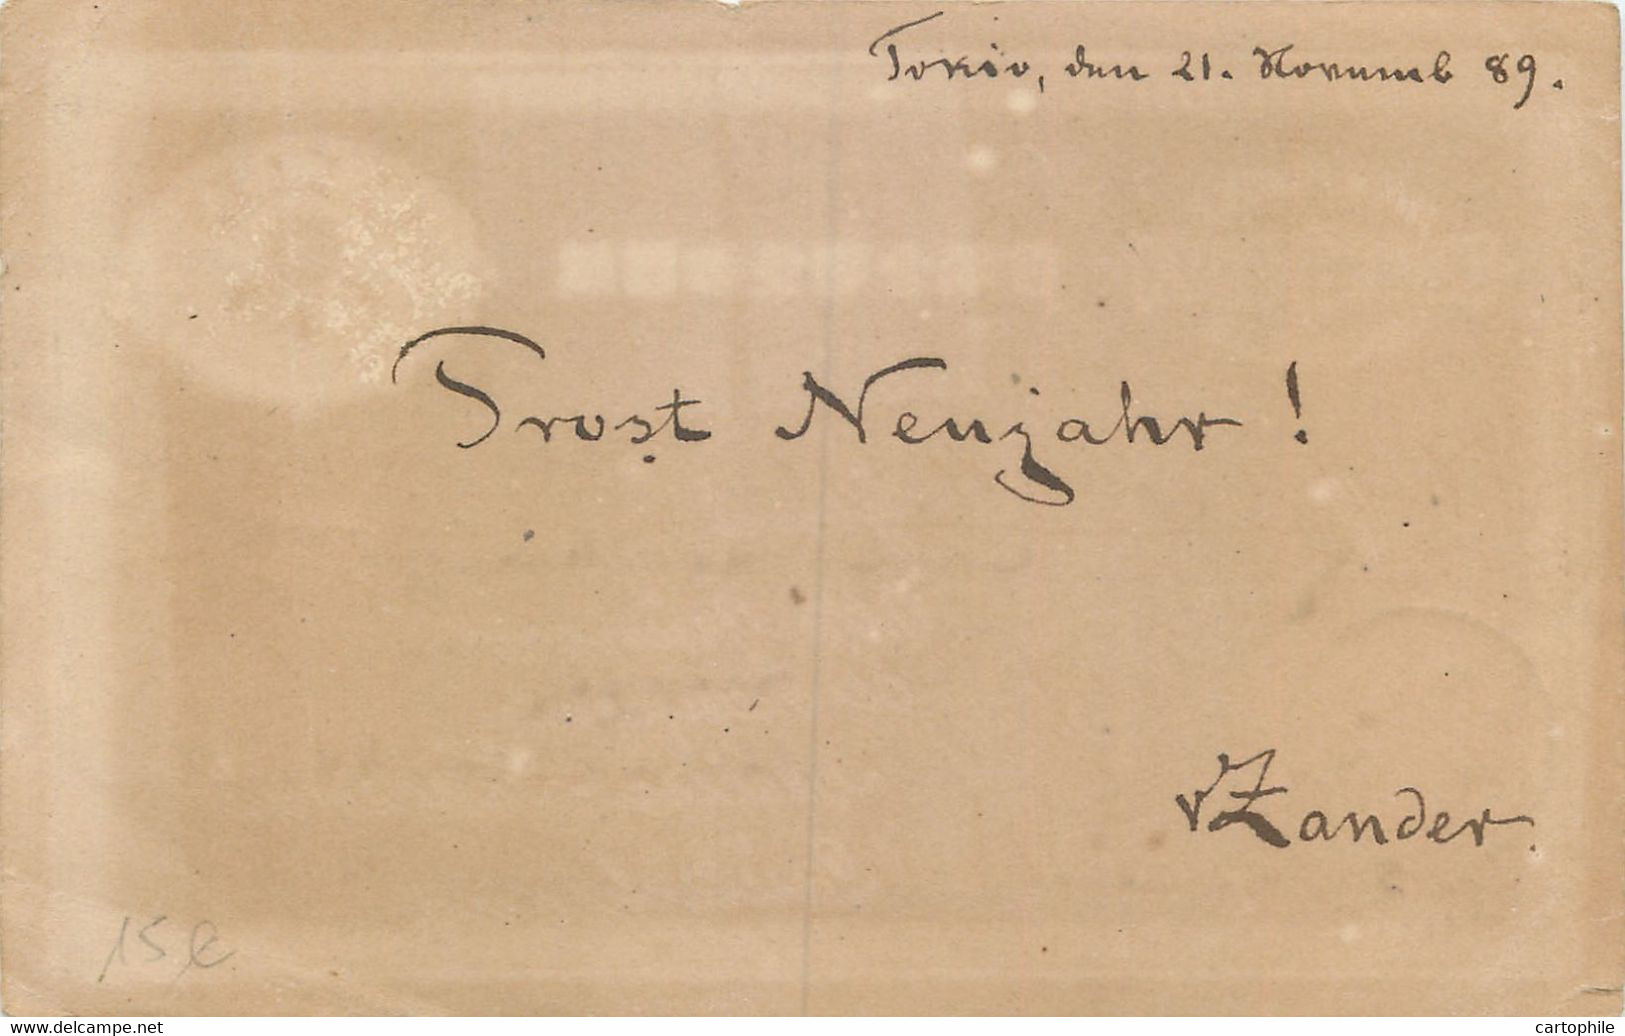 Tokio, den 21. Novemb 89.
Prost Neujahr!
v Zander.
15 €
www.delcampe.net
cartophile